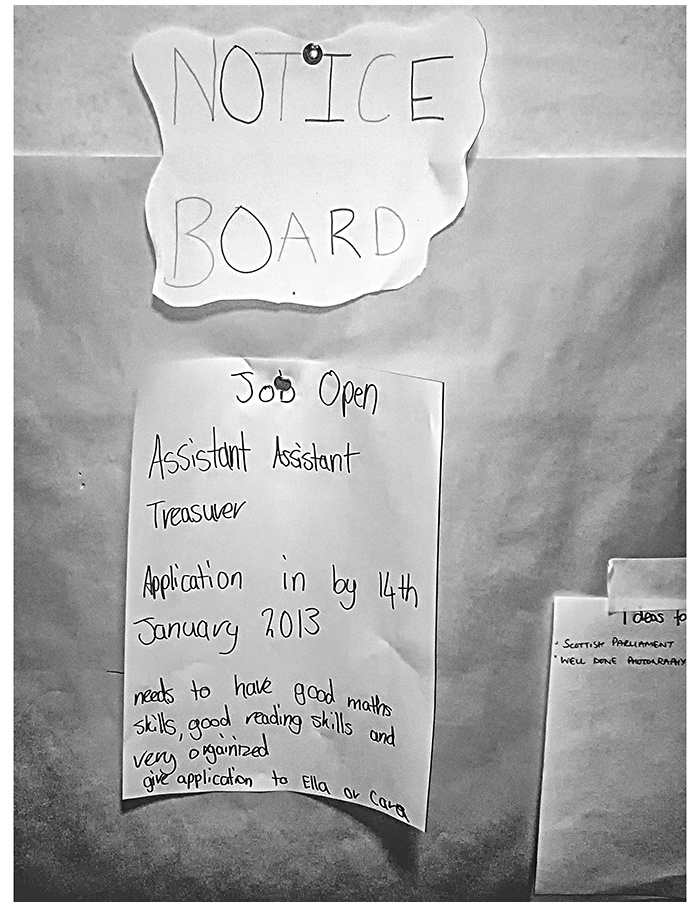 NOTICE
BOARD
Job Open
Assistant Assistant
Treasurer
Application in by 14th
January 2013
needs to have good maths
skills, good reading skills and
very orgainized
give application to Ella or Cara
Ideas to
· SCOTTISH PARLIAMENT
· WELL DONE PHOTOGRAPHY